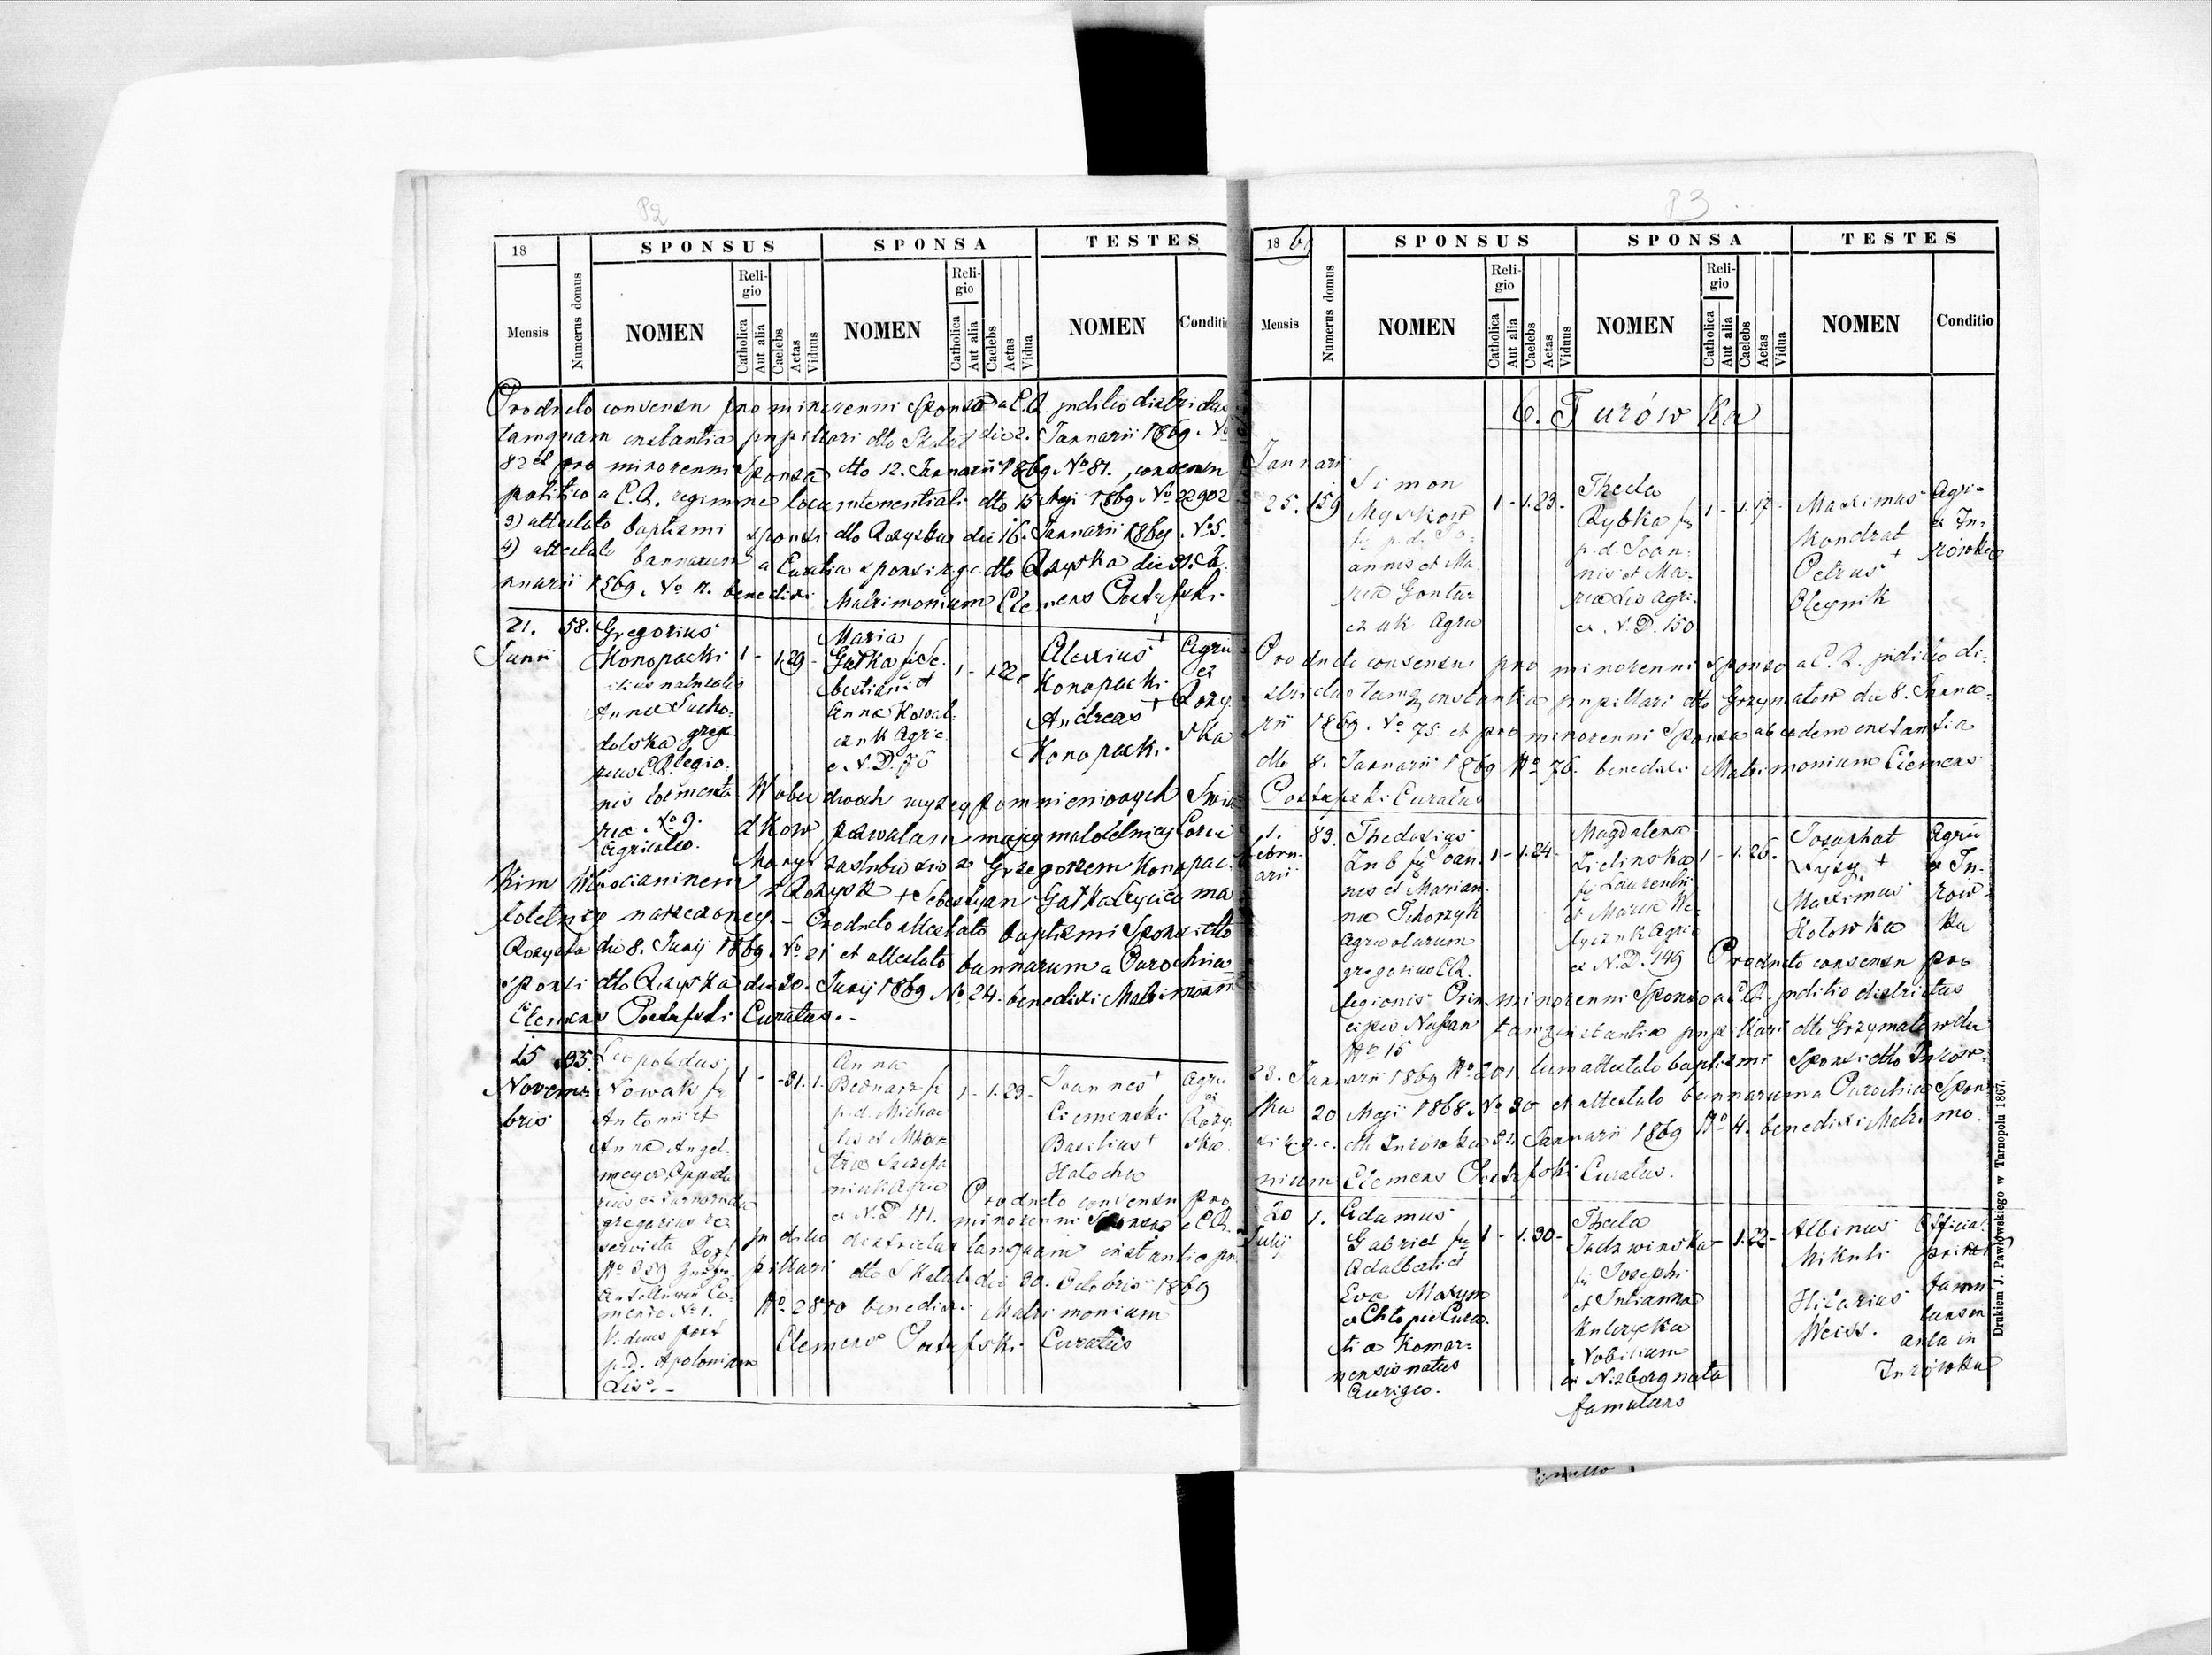 P2
18
SPONSUS
SPONSA
TESTES
Mensis
Numerus domus
NOMEN
Religio
Catholica
Aut alia
Caelebs
Aetas
Viduus
NOMEN
Religio
Catholica
Aut alia
Caelebs
Aetas
Vidua
NOMEN
Conditio
Producto consensu pro minorenni Sponso a C.R. juditio districtus
tamquam instantia pupillari dto Skalat die 2. Januarii 1869. No
82 et pro minorenni Sponsa dto 12. Januarii 1869 No 81. consensu
politico a C.R. regimine locumtenentiali dto 15 Maji 1869. No 22902
3) attestato baptismi sponsi dto Rozyska die 16. Januarii 1869. No 5.
4) attestato bannarum a Curatia sponsi r.g.c. dto Rozyska die 31. Ja-
nuarii 1869. No benedixi Matrimonium Clemens
21.
Junii
58.
Gregorius
Konopacki
filius naturalis
Anna Sucho-
dolska grega-
rius C.R. legio-
nis
No 9.
Agricola.
1 - 1.29 -
Maria
Gatka fi Se-
bestiani et
Anna Kowal-
czuk Agric.
e N.D. 75
1 - 1.22
Alexius +
Konopacki
Andreas +
Konopacki.
Agri
ex
Rozy-
ska
W obec dwoch wyzey pomnienionych Swia
dkow pozwalam mojey maloletniey Corce
Maryi zaslubic sie z Grzegorzem Konopac-
kim Wloscianinem z Rozysk + Sebestyan Gatka Oycie ma
loletniey narzeczoney. - Producto attestato baptismi Sponsi dto
Rozyska die 8. Junij 1869 No 21 et attestato bannarum a Parochia
sponsi dto Rozyska die 20. Junij 1869 No 24. benedixi Matrimonium
Clemens Curatus. -
15
Novem-
bris
95.
Leopoldus
Nowak fi
Antonii et
Anna Angel-
meyer
gregarius re-
servista
No 359
No 1.
Viduus post
p.d. Apoloniam
Lis. -
1 - - 31. 1.
Anna
Bednarz fi
p.d. Michae
lis et Maria
Szczepa
niuk Agric
e N.D. 111.
1 - 1.23 -
Joannes +
Ciemenski
Basilius +
Halocha
Agri
ex
Rozy-
ska
Producto consensu pro
minorenni Sponsa a C.R.
juditio districtus tamquam instantia pu
pillari dto Skalat die 30. Octobris 1869
No 2810 benedixi Matrimonium
Clemens Curatus
P3
186
SPONSUS
SPONSA
TESTES
Mensis
Numerus domus
NOMEN
Religio
Catholica
Aut alia
Caelebs
Aetas
Viduus
NOMEN
Religio
Catholica
Aut alia
Caelebs
Aetas
Vidua
NOMEN
Conditio
6. Turówka
Januari
25.
159
Simon
Myskow
fi p.d. Jo-
annis et Ma-
ria Gontar
czuk Agric
1 - 1.23 -
Thecla
Rybka fi
p.d. Joan-
nis et Ma-
ria Lis Agri.
ex N.D. 150
1 - 1.17 -
Maximus
Kondrat
Petrus +
Oleynik
Agri-
ex Tu-
rówka
Producto consensu pro minorenni sponso a C.R. juditio di-
strictus tamq instantia pupillari dto Grzymalow die 8. Janua-
rii 1869. No 75. et pro minorenni Sponsa ab eadem instantia
dto 8. Januarii 1869 No 76. benedixi Matrimonium Clemens
Curatus
1.
Febru-
arii
83.
Thedosius
Zub fi Joan-
nes et Marian-
na Tchorzyk
Agricolarum
gregarius C.R.
legionis Prin-
cipis Nassau
No 15
1 - 1.24 -
Magdalena
Zielinska
fi Laurentii
et Maria We-
lyczuk Agric
ex N.D. 149
1 - 1.26 -
Josaphat
Lysy +
Maximus
Holowka
Agri
e Tu-
rów-
ka
Producto consensu pro
minorenni Sponso a C.R. juditio districtus
tamq instantia pupillari dto Grzymalow die
23. Januarii 1869 No 201 tum attestato baptismi Sponsi dto Turów-
ka 20 Maji 1868. No 30 et attestato bannarum a Parochia Spon-
si r.g.c. dto Turówka 31. Januarii 1869 No 4. benedixi Matrimo-
nium Clemens Curatus.
20
Julij
1.
Adamus
Gabriel fi
Adalberti et
Eva Maxym
e Chlopie Cura-
tia Komar-
nensis natus
Auriga.
1 - 1.30 -
Thecla
Jadzwinska
fi Josephi
et Julianna
Kulczycka
Nobilium
in Nizborg nata
famulans
- 1.22 -
Albinus
Mikuli
Hilarius
Weiss.
Official
privat
famu
lans in
aula in
Turówka
Drukiem J. Pawłowskiego w Tarnopolu 1867.